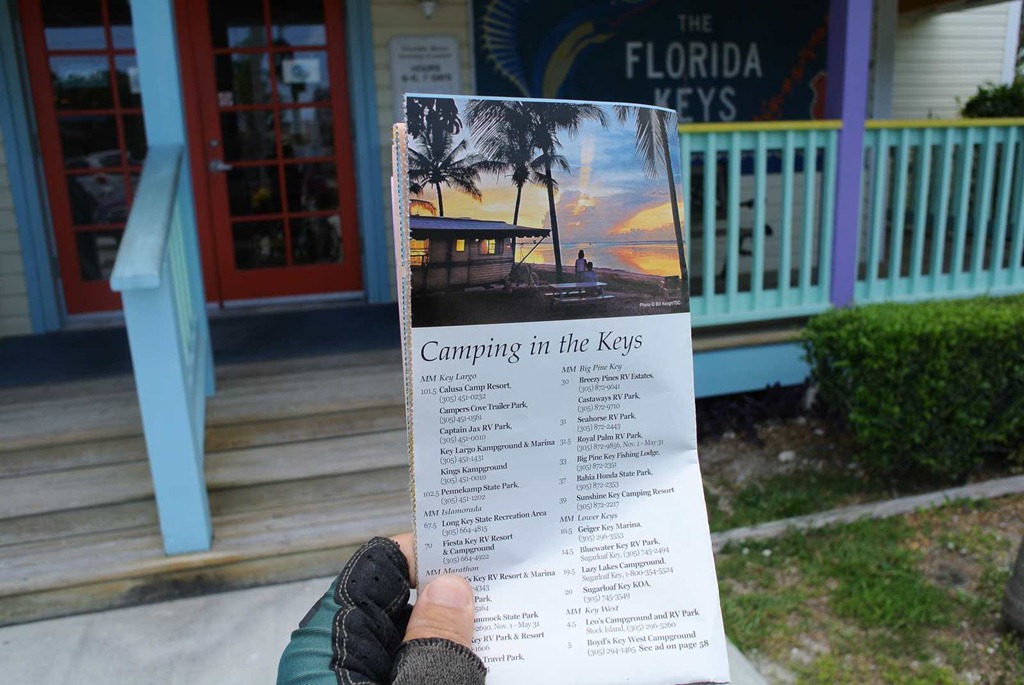 THE
FLORIDA
KEYS
HOURS
Photo © Bill Keogh/TDC
Camping in the Keys
MM Key Largo
101.5 Calusa Camp Resort,
(305) 451-0232
Campers Cove Trailer Park,
(305) 451-0561
Captain Jax RV Park,
(305) 451-0010
Key Largo Kampground & Marina
(305) 451-1431
Kings Kampground
(305) 451-0010
102.5 Pennekamp State Park,
(305) 451-1202
MM Islamorada
67.5 Long Key State Recreation Area
(305) 664-4815
70 Fiesta Key RV Resort
& Campground
(305) 664-4922
MM Marathon
's Key RV Resort & Marina
4343
Park,
5164
mmock State Park
2690, Nov. 1 - May 31
Key RV Park & Resort
1606
Travel Park,
MM Big Pine Key
30 Breezy Pines RV Estates,
(305) 872-9041
Castaways RV Park,
(305) 872-9710
31 Seahorse RV Park,
(305) 872-2443
31.5 Royal Palm RV Park,
(305) 872-9856, Nov. 1 - May 31
33 Big Pine Key Fishing Lodge,
(305) 872-2351
37 Bahia Honda State Park,
(305) 872-2353
39 Sunshine Key Camping Resort
(305) 872-2217
MM Lower Keys
10.5 Geiger Key Marina,
(305) 296-3553
14.5 Bluewater Key RV Park,
Sugarloaf Key, (305) 745-2494
19.5 Lazy Lakes Campground,
Sugarloaf Key, 1-800-354-5524
20 Sugarloaf Key KOA,
(305) 745-3549
MM Key West
4.5 Leo's Campground and RV Park
Stock Island, (305) 296-5260
5 Boyd's Key West Campground
(305) 294-1465 See ad on page 58